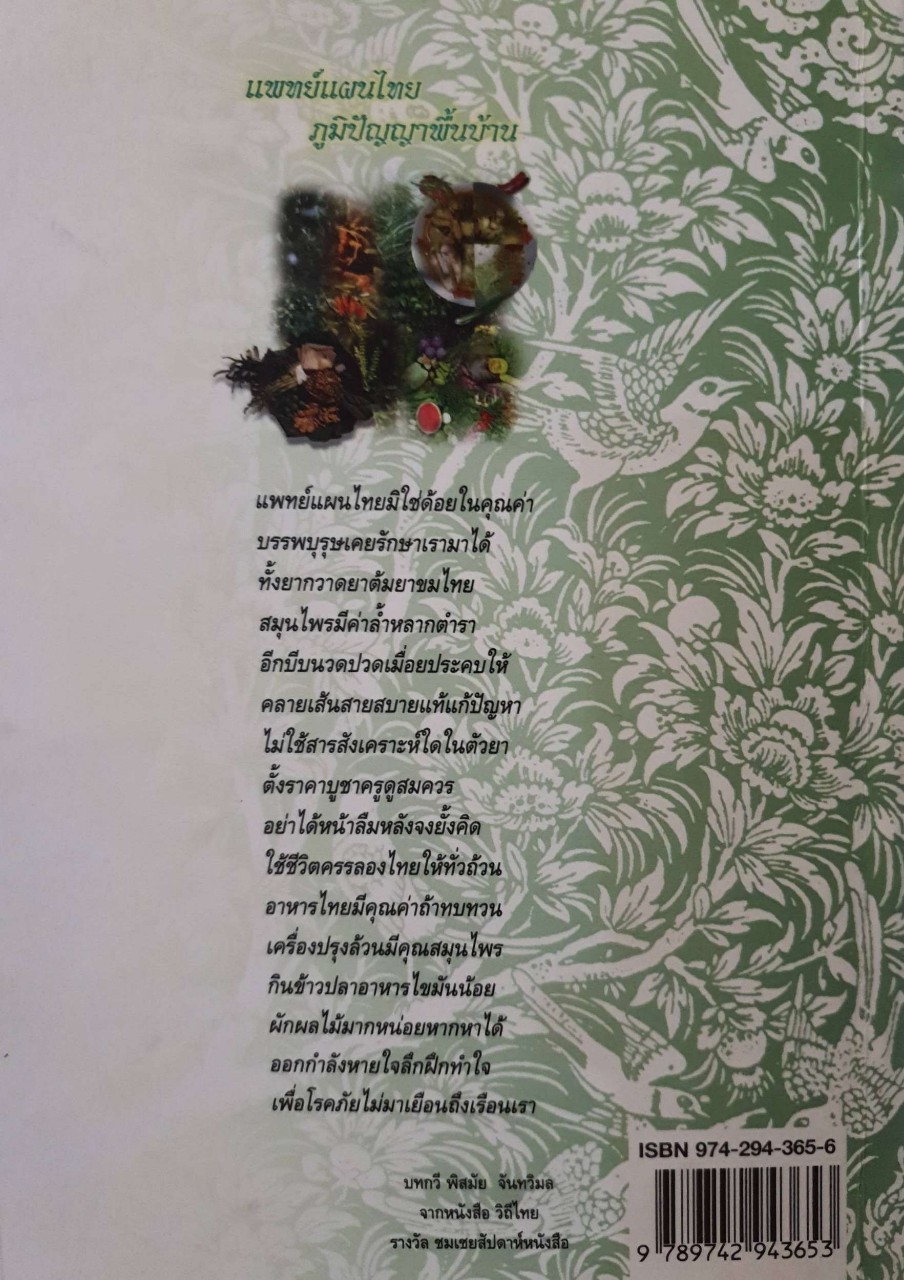 แพทย์แผนไทย
ภูมิปัญญาพื้นบ้าน
แพทย์แผนไทยมิใช่ด้อยในคุณค่า
บรรพบุรุษเคยรักษาเรามาได้
ทั้งยากวาดยาต้มยาขมไทย
สมุนไพรมีค่าล้ำหลากตำรา
อีกบีบนวดปวดเมื่อยประคบให้
คลายเส้นสายสบายแท้แก้ปัญหา
ไม่ใช้สารสังเคราะห์ใดในตัวยา
ตั้งราคาบูชาครูดูสมควร
อย่าได้หน้าลืมหลังจงยั้งคิด
ใช้ชีวิตครรลองไทยให้ทั่วถ้วน
อาหารไทยมีคุณค่าถ้าทบทวน
เครื่องปรุงล้วนมีคุณสมุนไพร
กินข้าวปลาอาหารไขมันน้อย
ผักผลไม้มากหน่อยหากหาได้
ออกกำลังหายใจลึกฝึกทำใจ
เพื่อโรคภัยไม่มาเยือนถึงเรือนเรา
บทกวี พิสมัย จันทวิมล
จากหนังสือ วิถีไทย
รางวัล ชมเชยสัปดาห์หนังสือ
ISBN 974-294-365-6
9 789742 943653